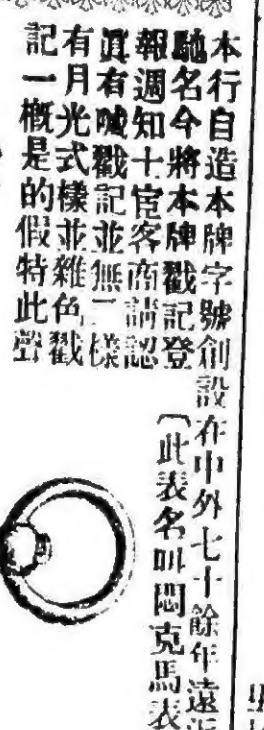 本行自造本牌字號創設在中外七十餘年遠近
馳名今將本牌戳記登
報週知士宦客商請認
真有喊戳記並無二樣
有月光式樣並雜色戳
記一概是的假特此聲
〔此表名叫悶克馬表